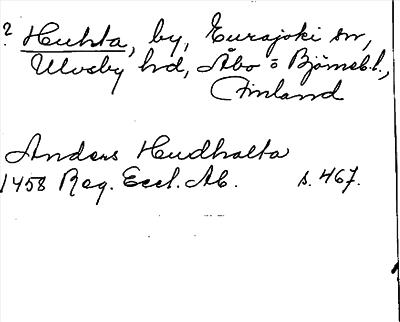 ? Huhta, by, Eurajoki sn,
Ulvsby hd, Åbo o Björneb.l.,
Finland
Anders Hudhalta
1458 Reg. Eccl. Ab. s. 467.